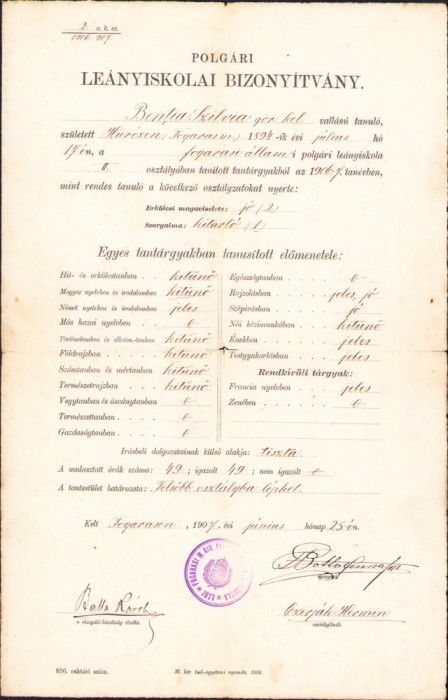 2 o. k. sz.
1906-907.
POLGÁRI
LEÁNYISKOLAI BIZONYÍTVÁNY.
Benția Szilvia gör. kel. vallású tanuló,
született (Fogarasm.) 1894-ik évi július hó
17-én, a fogarasi állami polgári leányiskola
II. osztályában tanított tantárgyakból az 1906-7. tanévben,
mint rendes tanuló a következő osztályzatokat nyerte:
Erkölcsi magaviselete: jó (2)
Szorgalma: kitartó (1)
Egyes tantárgyakban tanusított előmenetele:
Hit- és erkölcstanban kitünő
Magyar nyelvben és irodalomban kitünő
Német nyelvben és irodalomban jeles
Más hazai nyelvben
Történelemben és alkotm.-tanban kitünő
Földrajzban kitünő
Számtanban és mértanban kitünő
Természetrajzban kitünő
Vegytanban és ásványtanban
Természettanban
Gazdaságtanban
Egészségtanban
Rajzolásban jeles, jó
Szépírásban jó
Női kézimunkában kitünő
Énekben jeles
Testgyakorlásban jeles
Rendkívüli tárgyak:
Francia nyelvben jeles
Zenében
Irásbeli dolgozatainak külső alakja: tiszta
A mulasztott órák száma: 49; igazolt 49; nem igazolt
A tantestület határozata: Felsőbb osztályba léphet.
Kelt Fogarason, 1907. évi június hónap 25-én.
Balla Károly
a vizsgáló-bizottság elnöke.
Hermin
osztályfőnök.
936. raktári szám.
M. kir. tud.-egyetemi nyomda. 1906.